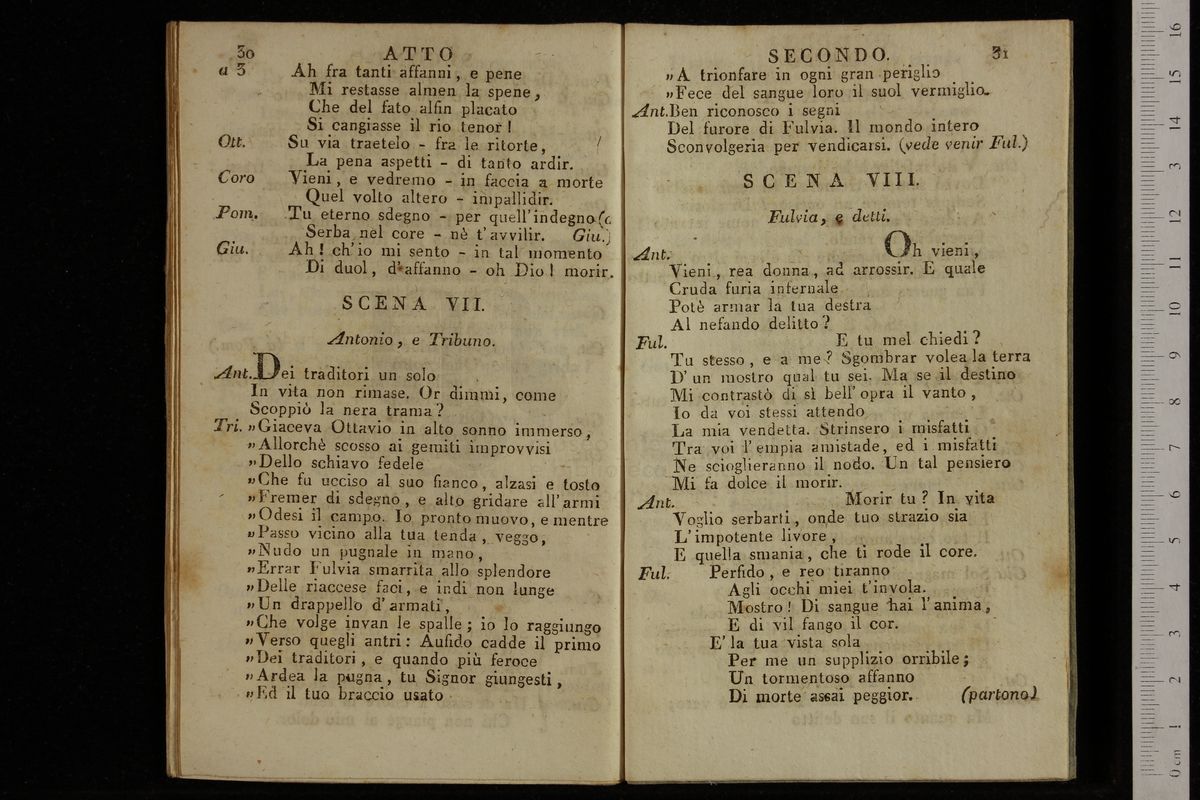 30 ATTO
a 3 Ah fra tanti affanni, e pene
Mi restasse almen la spene,
Che del fato alfin placato
Si cangiasse il rio tenor!
Ott. Su via traetelo - fra le ritorte,
La pena aspetti - di tanto ardir.
Coro Vieni, e vedremo - in faccia a morte
Quel volto altero - impallidir.
Pom. Tu eterno sdegno - per quell'indegno (a
Serba nel core - nè t'avvilir. Giu.)
Giu. Ah! ch'io mi sento - in tal momento
Di duol, d'affanno - oh Dio! morir.
SCENA VII.
Antonio, e Tribuno.
Ant. Dei traditori un solo
In vita non rimase. Or dimmi, come
Scoppiò la nera trama?
Tri. »Giaceva Ottavio in alto sonno immerso,
»Allorchè scosso ai gemiti improvvisi
»Dello schiavo fedele
»Che fu ucciso al suo fianco, alzasi e tosto
»Fremer di sdegno, e alto gridare all'armi
»Odesi il campo. Io pronto muovo, e mentre
»Passo vicino alla tua tenda, veggo,
»Nudo un pugnale in mano,
»Errar Fulvia smarrita allo splendore
»Delle riaccese faci, e indi non lunge
»Un drappello d'armati,
»Che volge invan le spalle; io lo raggiungo
»Verso quegli antri: Aufido cadde il primo
»Dei traditori, e quando più feroce
»Ardea la pugna, tu Signor giungesti,
»Ed il tuo braccio usato
SECONDO. 31
»A trionfare in ogni gran periglio
»Fece del sangue loro il suol vermiglio.
Ant. Ben riconosco i segni
Del furore di Fulvia. Il mondo intero
Sconvolgeria per vendicarsi. (vede venir Ful.)
SCENA VIII.
Fulvia, e detti.
Ant. Oh vieni,
Vieni, rea donna, ad arrossir. E quale
Cruda furia infernale
Potè armar la tua destra
Al nefando delitto?
Ful. E tu mel chiedi?
Tu stesso, e a me? Sgombrar volea la terra
D'un mostro qual tu sei. Ma se il destino
Mi contrastò di sì bell'opra il vanto,
Io da voi stessi attendo
La mia vendetta. Strinsero i misfatti
Tra voi l'empia amistade, ed i misfatti
Ne scioglieranno il nodo. Un tal pensiero
Mi fa dolce il morir.
Ant. Morir tu? In vita
Voglio serbarti, onde tuo strazio sia
L'impotente livore,
E quella smania, che ti rode il core.
Ful. Perfido, e reo tiranno
Agli occhi miei t'invola.
Mostro! Di sangue hai l'anima,
E di vil fango il cor.
E' la tua vista sola
Per me un supplizio orribile;
Un tormentoso affanno
Di morte assai peggior. (partono)
0 cm 1 2 3 4 5 6 7 8 9 10 11 12 13 14 15 16